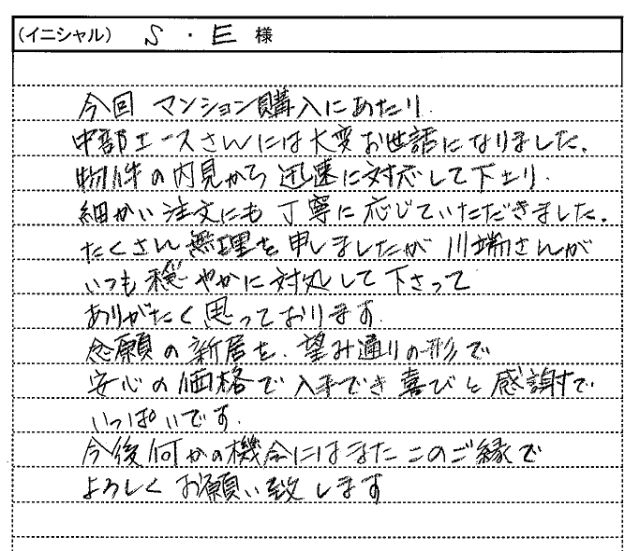 (イニシャル) S ・ E 様
今回 マンション購入にあたり.
中部エースさんには大変お世話になりました.
物件の内見から 迅速に対応して下さり.
細かい注文にも 丁寧に応じていただきました.
たくさん無理を申しましたが 川端さんが
いつも穏やかに対処して下さって
ありがたく思っております.
念願の新居を. 望み通りの形で
安心の価格で入手でき 喜びと感謝で
いっぱいです.
今後何かの機会にはまたこのご縁で
よろしくお願い致します